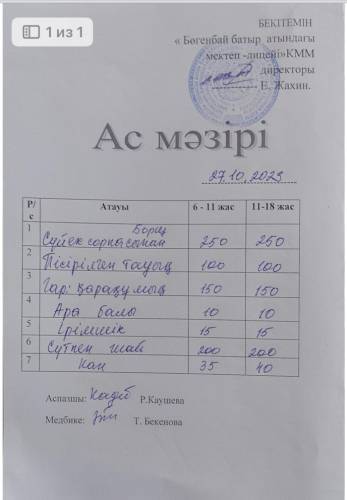 1 из 1
БЕКІТЕМІН
« Бөгенбай батыр атындағы
мектеп -лицейі»КММ
директоры
Е. Жахин.
Ас мәзірі
27.10.2023
Р/с Атауы 6 - 11 жас 11-18 жас
1 Борщ
Сүйек сорпасынан 250 250
2 Пісірілген тауық 100 100
3 Гар: қарақұмық 150 150
4 Ара балы 10 10
5 Ірімшік 15 15
6 Сүтпен шай 200 200
7 Нан 35 40
Аспазшы: Р.Каушева
Медбике: Т. Бекенова